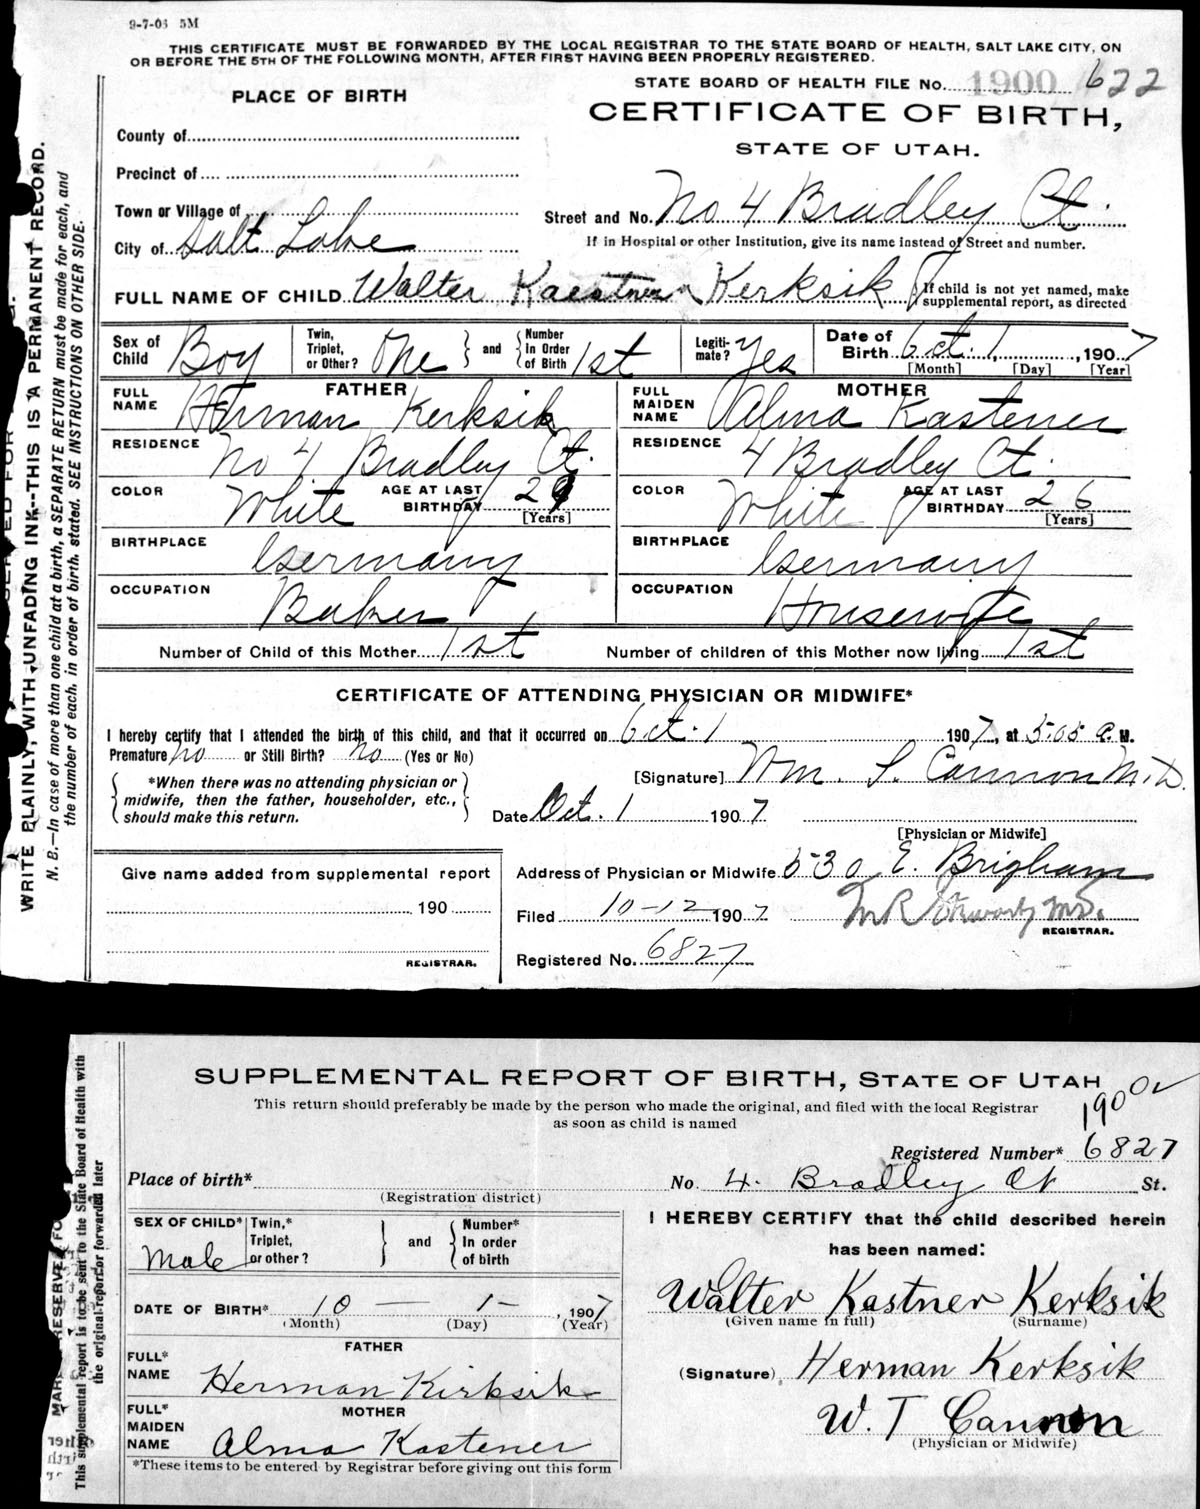 9-7-06 5M
THIS CERTIFICATE MUST BE FORWARDED BY THE LOCAL REGISTRAR TO THE STATE BOARD OF HEALTH, SALT LAKE CITY, ON
OR BEFORE THE 5TH OF THE FOLLOWING MONTH, AFTER FIRST HAVING BEEN PROPERLY REGISTERED.
STATE BOARD OF HEALTH FILE No. 1900 622
PLACE OF BIRTH
CERTIFICATE OF BIRTH,
STATE OF UTAH.
County of
Precinct of
Town or Village of
City of Salt Lake
Street and No. No 4 Bradley Ct.
If in Hospital or other Institution, give its name instead of Street and number.
FULL NAME OF CHILD Walter Kaestner Kerksik
If child is not yet named, make
supplemental report, as directed
Sex of Child Boy
Twin, Triplet, or Other? One
and
Number In Order of Birth 1st
Legiti-mate? Yes
Date of Birth Oct. 1, 1907
[Month] [Day] [Year]
FATHER
FULL NAME Herman Kerksik
RESIDENCE No 4 Bradley Ct.
COLOR White
AGE AT LAST BIRTHDAY 29
[Years]
BIRTHPLACE Germany
OCCUPATION Baker
MOTHER
FULL MAIDEN NAME Alma Kastener
RESIDENCE 4 Bradley Ct.
COLOR White
AGE AT LAST BIRTHDAY 26
[Years]
BIRTHPLACE Germany
OCCUPATION Housewife
Number of Child of this Mother 1st
Number of children of this Mother now living 1st
CERTIFICATE OF ATTENDING PHYSICIAN OR MIDWIFE*
I hereby certify that I attended the birth of this child, and that it occurred on Oct. 1 1907, at 5:05 a.M.
Premature no or Still Birth? no (Yes or No)
*When there was no attending physician or
midwife, then the father, householder, etc.,
should make this return.
[Signature] Wm. T. Cannon M.D.
Date Oct. 1 1907
[Physician or Midwife]
Give name added from supplemental report
190
REGISTRAR.
Address of Physician or Midwife 530 E. Brigham
Filed 10-12 1907
M R Stewart M.D.
REGISTRAR.
Registered No. 6827
WRITE PLAINLY, WITH UNFADING INK--THIS IS A PERMANENT RECORD.
N. B.—In case of more than one child at a birth, a SEPARATE RETURN must be made for each, and
the number of each, in order of birth, stated. SEE INSTRUCTIONS ON OTHER SIDE.
SUPPLEMENTAL REPORT OF BIRTH, STATE OF UTAH
This return should preferably be made by the person who made the original, and filed with the local Registrar
as soon as child is named
Registered Number* 6827
Place of birth*
(Registration district)
No. 4. Bradley Ct St.
SEX OF CHILD* Male
Twin,* Triplet, or other?
and
Number* In order of birth
DATE OF BIRTH* 10 — 1 — , 1907
(Month) (Day) (Year)
FATHER
FULL* NAME Herman Kirksik
MOTHER
FULL* MAIDEN NAME Alma Kastener
*These items to be entered by Registrar before giving out this form
I HEREBY CERTIFY that the child described herein
has been named:
Walter Kastner Kerksik
(Given name in full) (Surname)
(Signature) Herman Kerksik
W. T Cannon
(Physician or Midwife)
This supplemental report is to be sent to the State Board of Health with
the original report or forwarded later